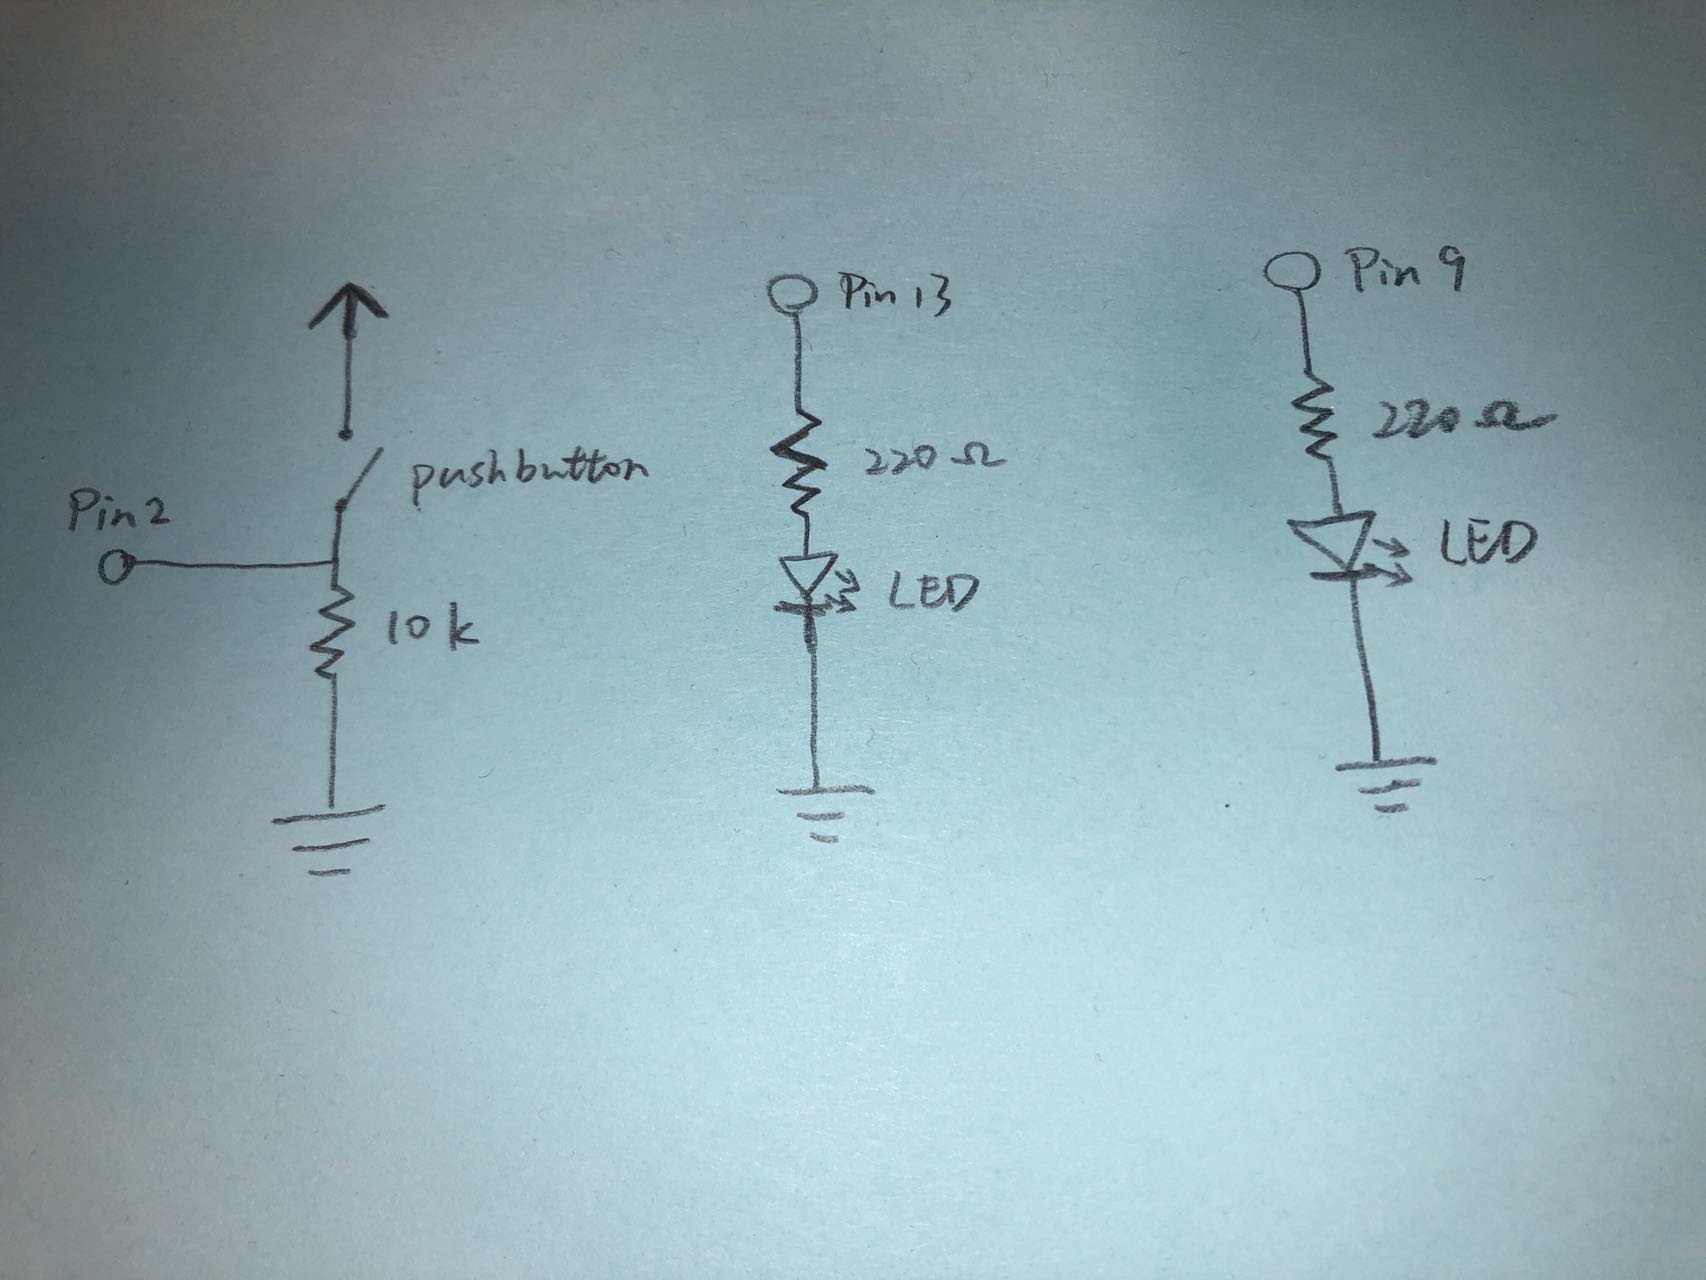 Pin 2
pushbutton
10k
Pin 13
220 Ω
LED
Pin 9
220 Ω
LED